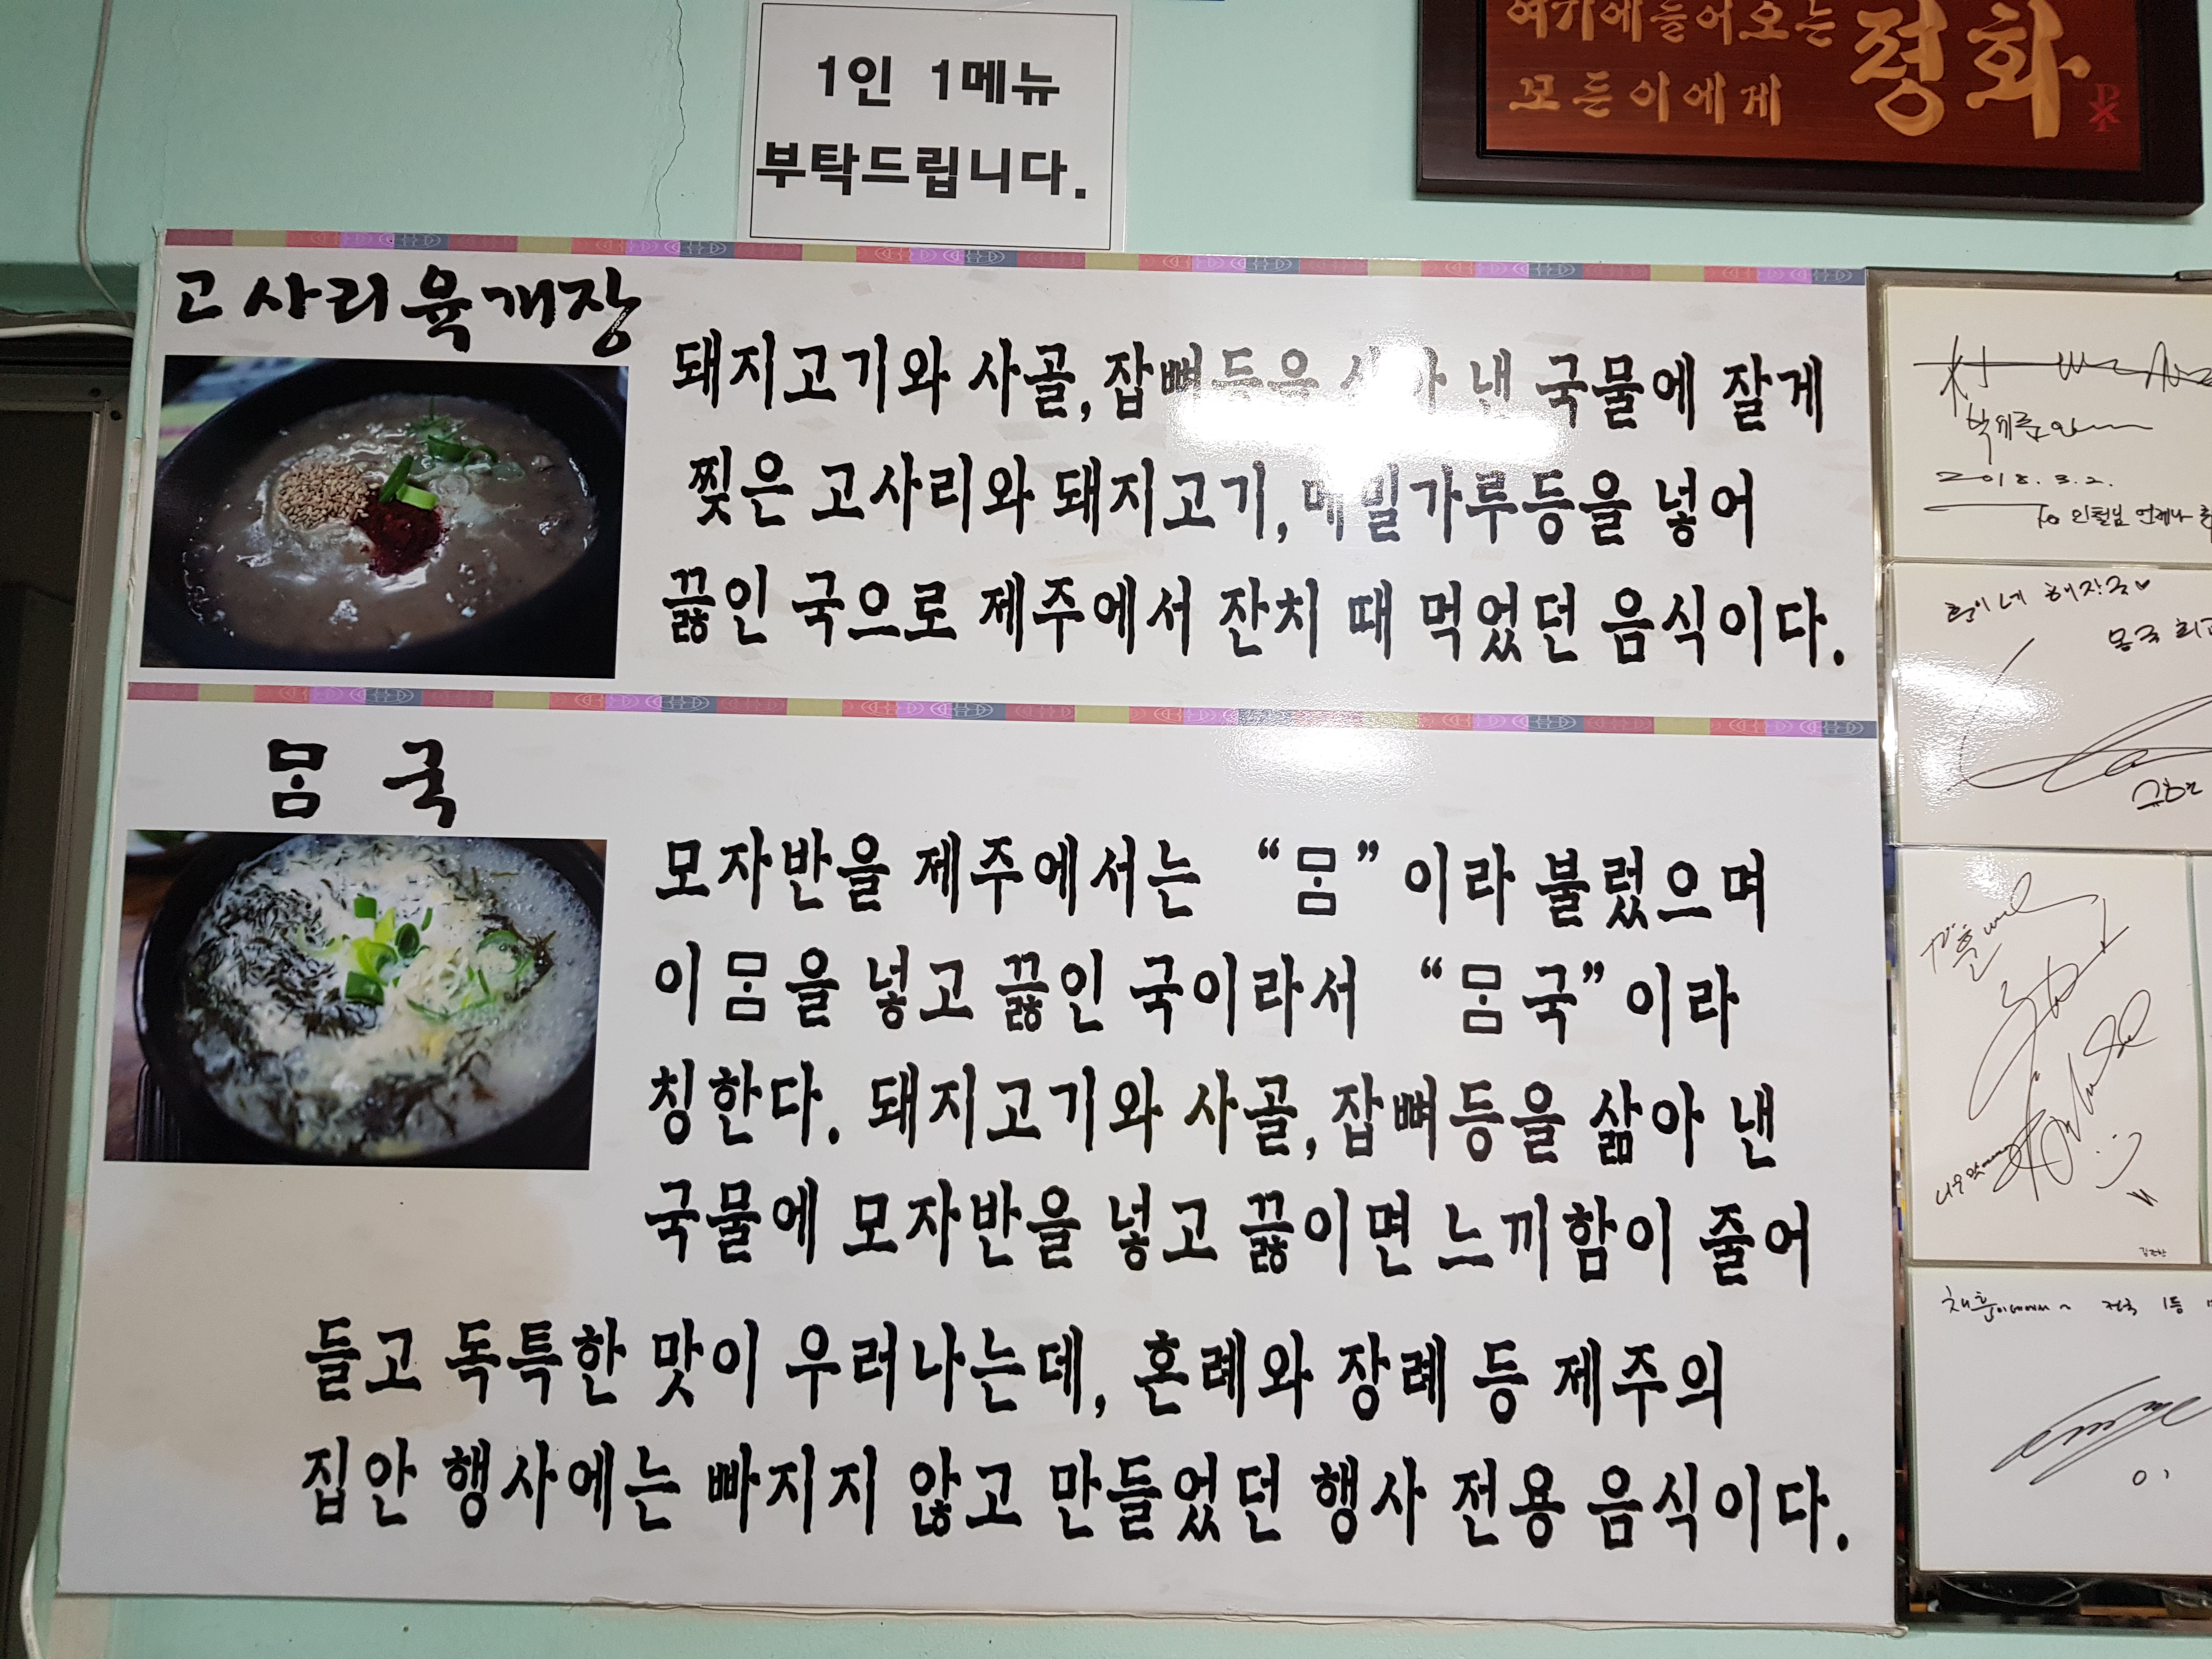 1인 1메뉴
부탁드립니다.
여기에들어오는
모든이에게
평화
고사리육개장
돼지고기와 사골,잡뼈등을 낸 국물에 잘게
찢은 고사리와 돼지고기,메밀가루등을 넣어
끓인 국으로 제주에서 잔치 때 먹었던 음식이다.
ᄆᆞᆷ 국
모자반을 제주에서는 “ᄆᆞᆷ”이라 불렀으며
이 ᄆᆞᆷ을 넣고 끓인 국이라서 “ᄆᆞᆷ국”이라
칭한다. 돼지고기와 사골,잡뼈등을 삶아 낸
국물에 모자반을 넣고 끓이면 느끼함이 줄어
들고 독특한 맛이 우러나는데, 혼례와 장례 등 제주의
집안 행사에는 빠지지 않고 만들었던 행사 전용 음식이다.
2018. 3. 2.
To 인철님 언제나
해장국♥
몸국